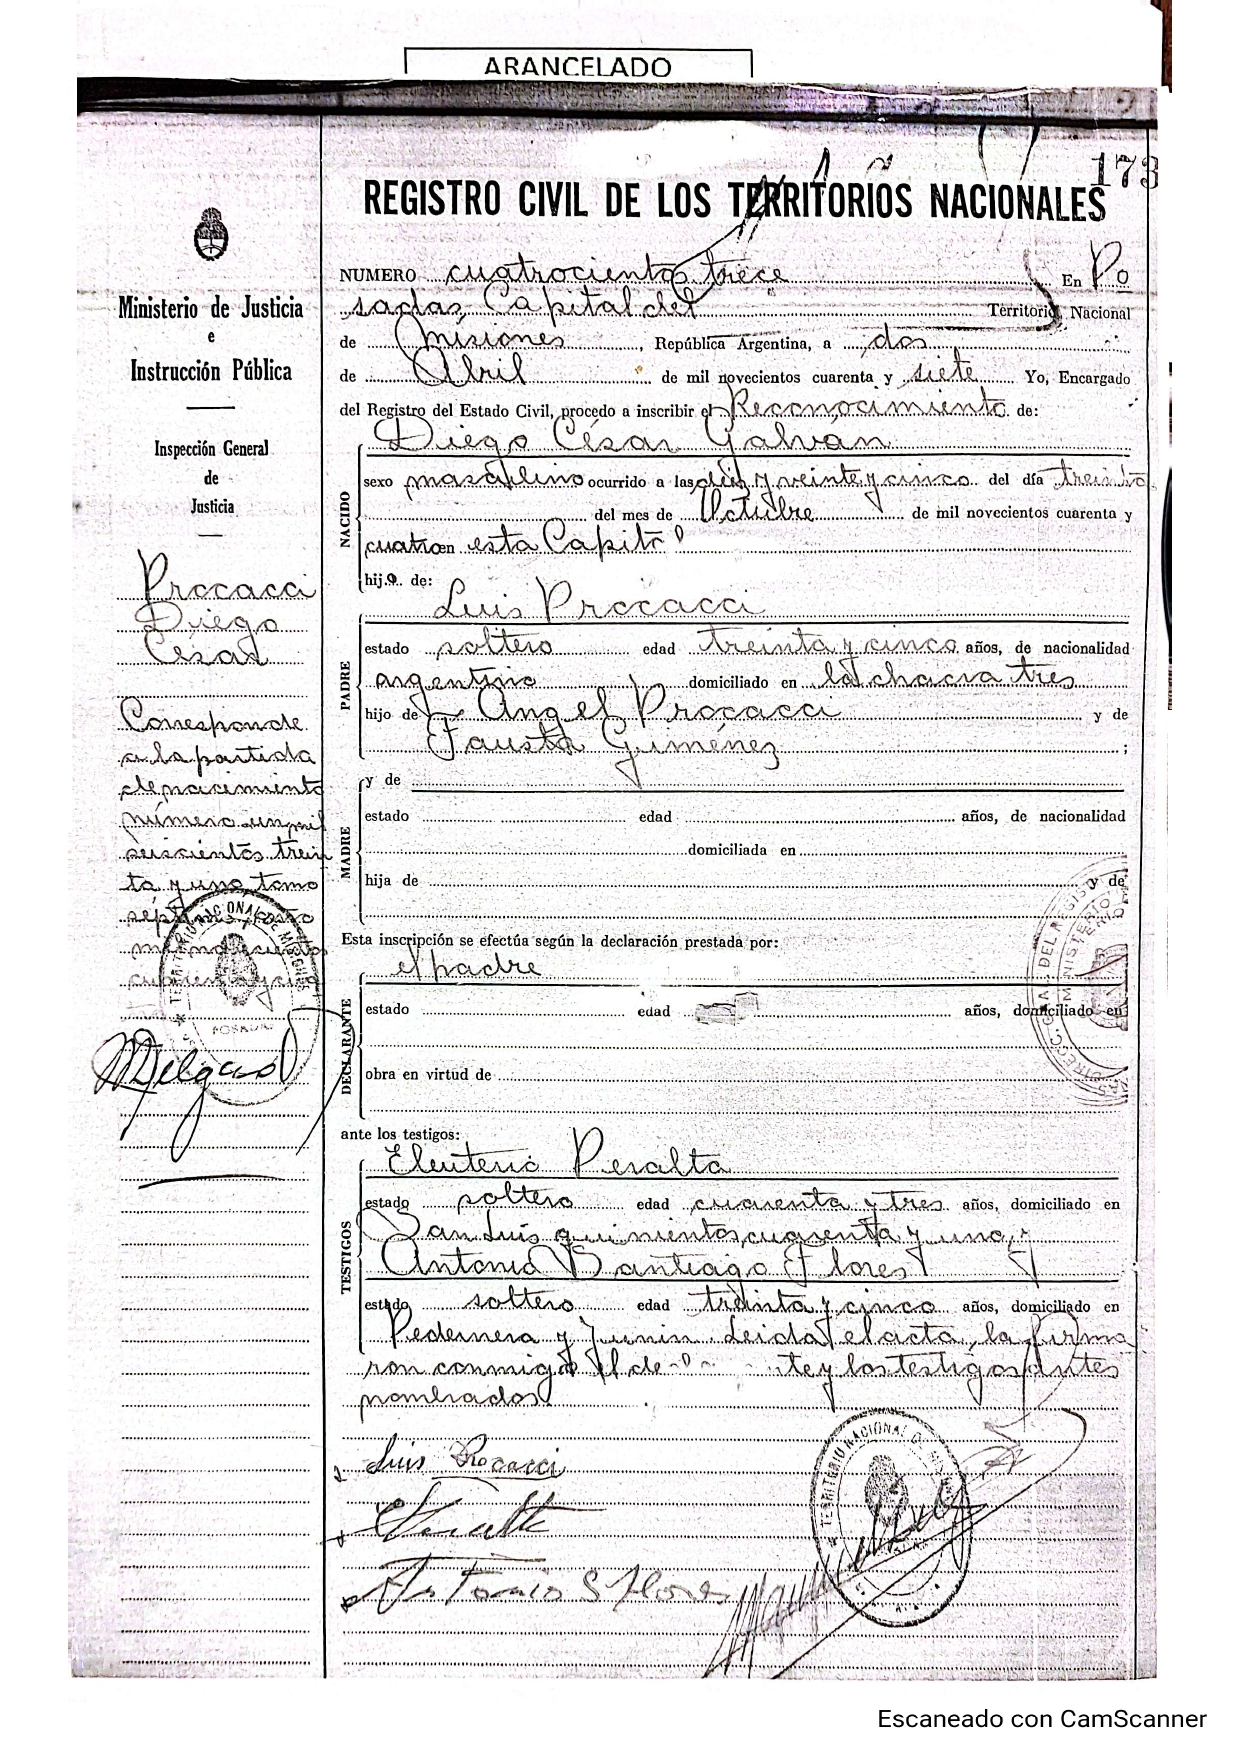 ARANCELADO
173
REGISTRO CIVIL DE LOS TERRITORIOS NACIONALES
NUMERO cuatrocientos trece En Po
sadas, Capital del Territorio Nacional
de Misiones, República Argentina, a dos
de Abril de mil novecientos cuarenta y siete Yo, Encargado
del Registro del Estado Civil, procedo a inscribir el Reconocimiento de:
Diego César Galván
NACIDO
sexo masculino ocurrido a las diez y veinte y cinco del día treinta
del mes de Octubre de mil novecientos cuarenta y
cuatro en esta Capital
hijo de:
Luis Procacci
PADRE
estado soltero edad treinta y cinco años, de nacionalidad
argentino domiciliado en la chacra tres
hijo de Angel Procacci y de
Fausta Giménez ;
MADRE
y de
estado edad años, de nacionalidad
domiciliada en
hija de y de
Esta inscripción se efectúa según la declaración prestada por:
el padre
DECLARANTE
estado edad años, domiciliado en
obra en virtud de
ante los testigos:
Eleuterio Peralta
TESTIGOS
estado soltero edad cuarenta y tres años, domiciliado en
San Luis quinientos cuarenta y uno, y
Antonio Santiago Flores
estado soltero edad treinta y cinco años, domiciliado en
Pedernera y Junin. Leida el acta, la firma
ron conmigo el y los testigos antes
nombrados.
Luis Procacci
Antonio S. Flores
TERRITORIO NACIONAL DE
Ministerio de Justicia
e
Instrucción Pública
Inspección General
de
Justicia
Procacci
Diego
César
Corresponde
a la partida
de nacimiento
número un mil
seiscientos trein
ta y uno tomo
séptimo año
mil novecientos
TERRITORIO NACIONAL DE MISIONES
POSADAS
Escaneado con CamScanner